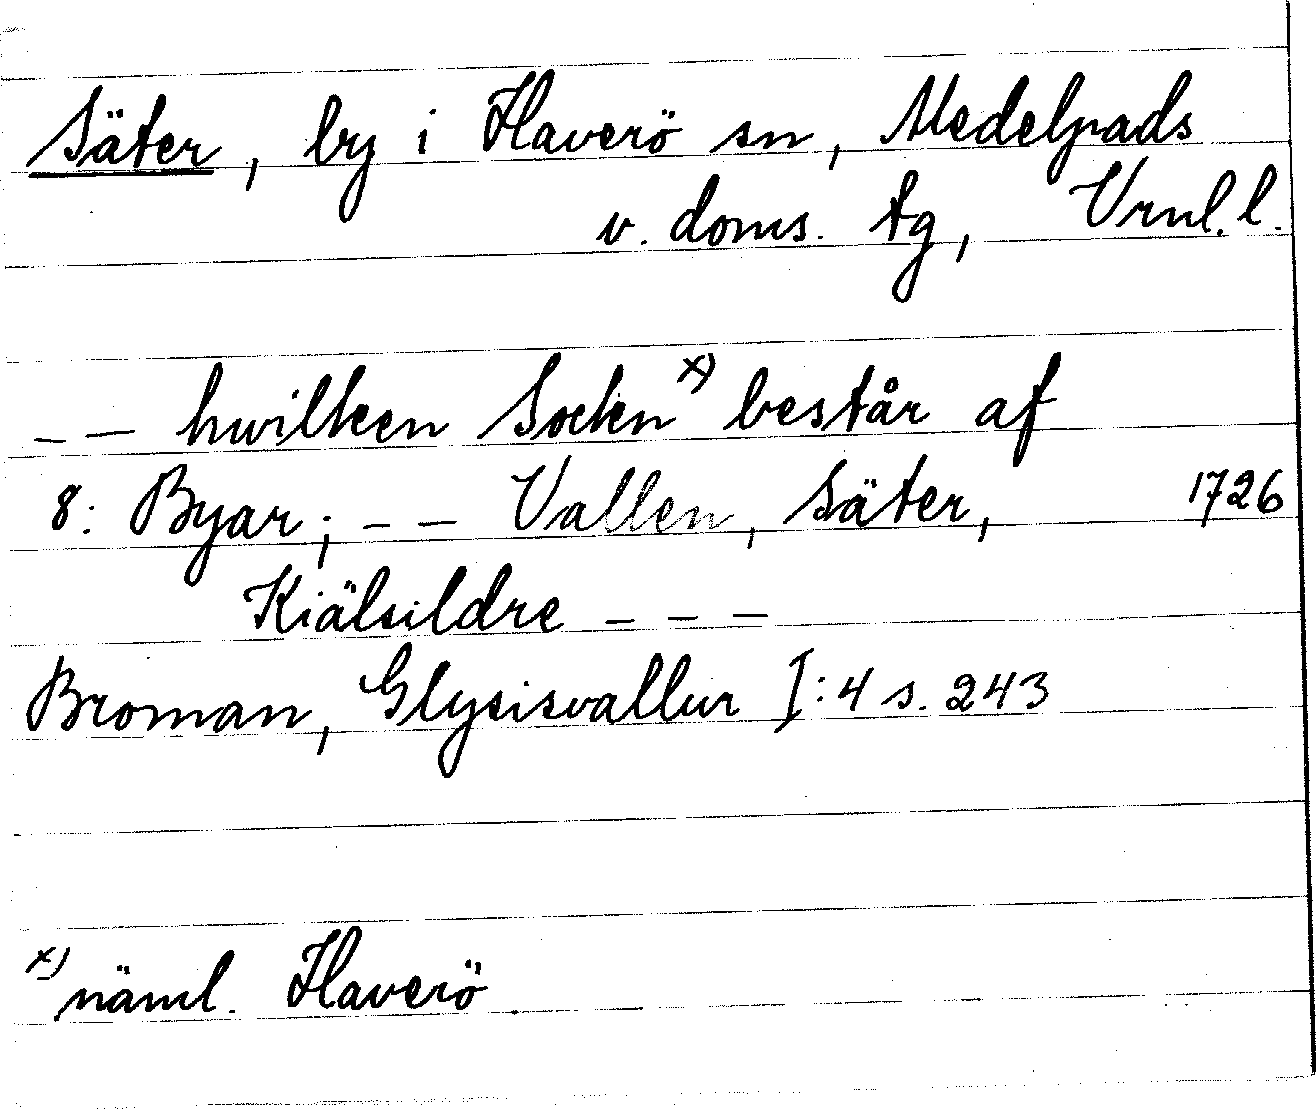 Säter, by i Haverö sn, Medelpads
v. doms. tg, Vrnl. l.
_ _ hwilken Socken x) består af
8: Byar; _ _ Vallen, Säter, 1726
Kiälsildre _ _ _
Broman, Glysisvallur I:4 s. 243
x) näml. Haverö